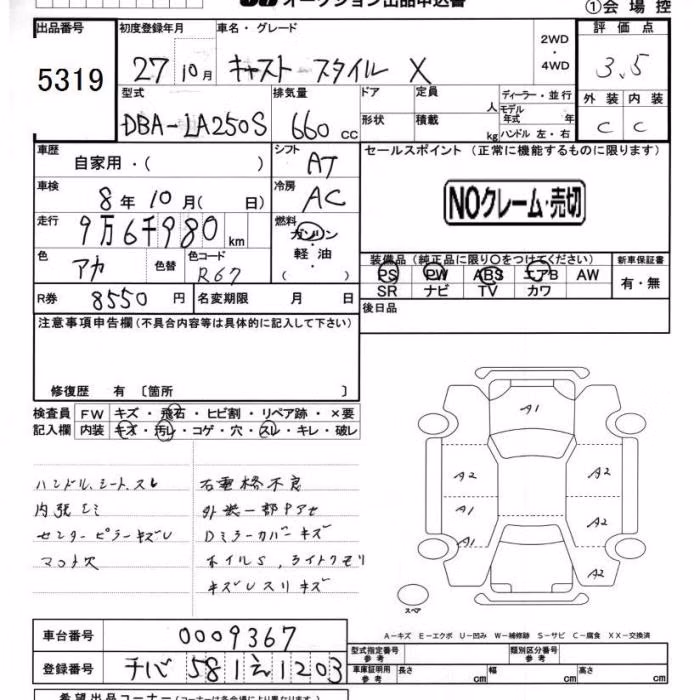 オークション出品申込書
①会場控
出品番号 初度登録年月 車名・グレード 評価点
5319 27 10月 キャスト スタイル X 2WD・4WD 3.5
型式 排気量 ドア 定員 人 ディーラー・並行 外装 内装
DBA-LA250S 660 cc 形状 積載 kg モデル年式 年 ハンドル 左・右 C C
車歴 シフト セールスポイント (正常に機能するものに限ります)
自家用・( ) AT
車検 冷房 NOクレーム・売切
8年10月( 日) AC
走行 燃料
9万6千980 km ガソリン・軽油・( )
色 色替 色コード 装備品(純正品に限り○をつけてください) 新車保証書
アカ R67 PS PW ABS エアB AW 有・無
SR ナビ TV カワ
R券 8550円 名変期限 月 日 後日品
注意事項申告欄(不具合内容等は具体的に記入して下さい)
修復歴 有 〔箇所 〕
検査員 FW キズ・飛石・ヒビ割・リペア跡・×要
記入欄 内装 キズ・汚レ・コゲ・穴・スレ・キレ・破レ
ハンドル、シート、スレ
内張シミ
センターピラーキズU
マット穴
外装一部アセ
Dミラーカバーキズ
ホイルS、ライトクモリ
キズUスリキズ
A1
A2 A2
A1 A2
A1
A2
スペア
A-キズ E-エクボ U-凹み W-補修跡 S-サビ C-腐食 XX-交換済
車台番号 0009367
型式指定番号 参考 類別区分番号 参考
登録番号 チバ 581 え 1203
車庫証明用 参考 長さ cm 幅 cm 高さ cm
希望出品コーナー(コーナーは各会場により異なります。)